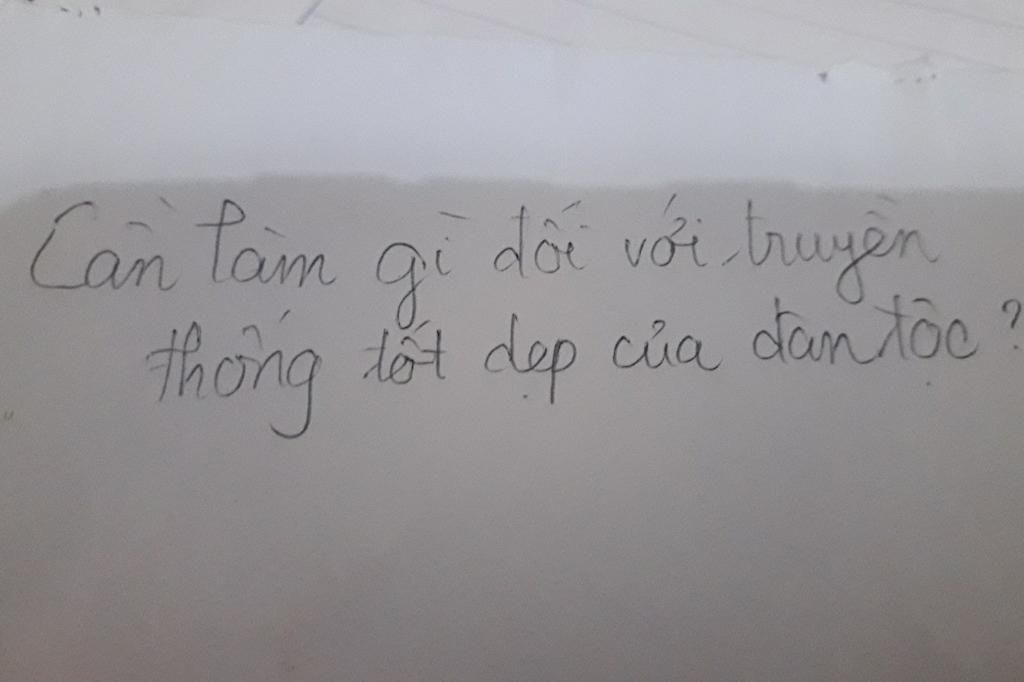 Cần làm gì đối với truyền
thống tốt đẹp của dân tộc?